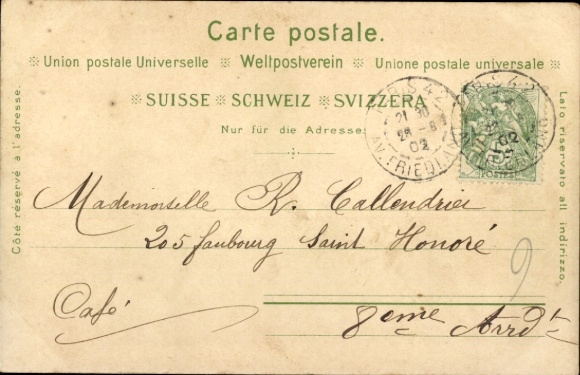 Carte postale.
Union postale Universelle Weltpostverein Unione postale universale
SUISSE SCHWEIZ SVIZZERA
Nur für die Adresse.
Côté réservé à l'adresse.
Lato riservato all indirizzo.
PARIS 42
21 30
28 - 8
02
AV. FRIEDLAND
POSTES
Mademoiselle R. Callendrier
205 faubourg Saint Honoré
9
Café
8eme Arrdt